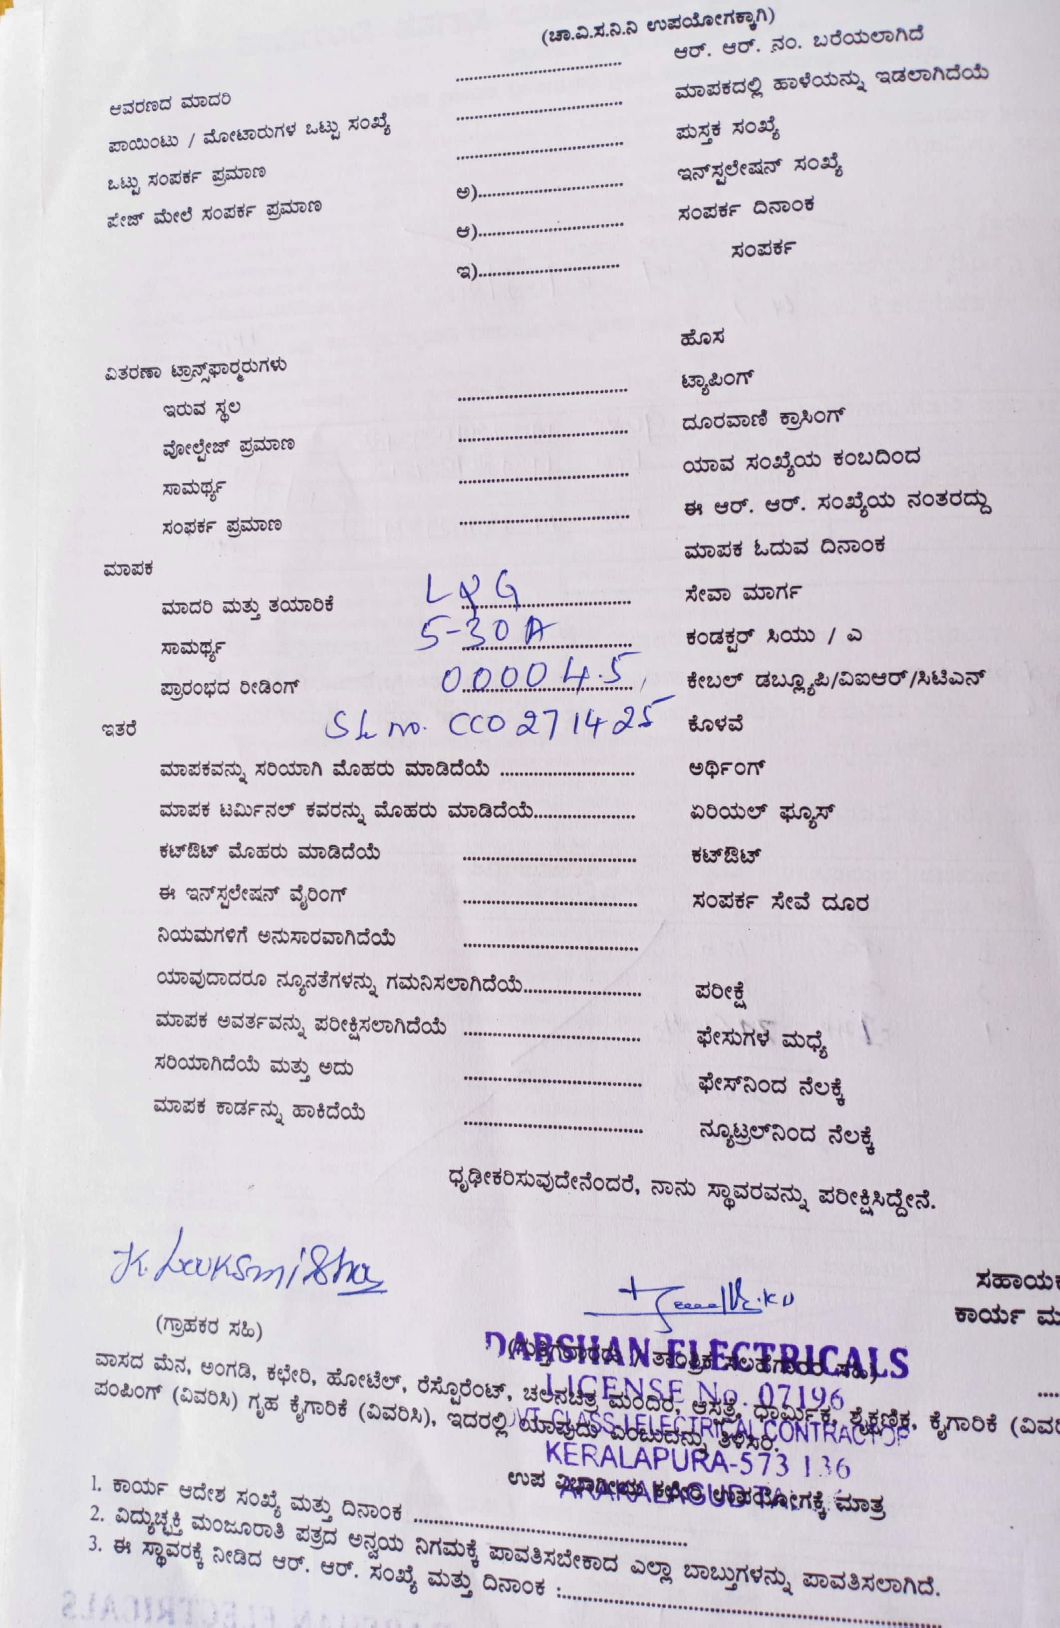 (ಚಾ.ವಿ.ಸ.ನಿ.ನಿ ಉಪಯೋಗಕ್ಕಾಗಿ)
ಆರ್. ಆರ್. ನಂ. ಬರೆಯಲಾಗಿದೆ
ಆವರಣದ ಮಾದರಿ .............................. ಮಾಪಕದಲ್ಲಿ ಹಾಳೆಯನ್ನು ಇಡಲಾಗಿದೆಯೆ
ಪಾಯಿಂಟು / ಮೋಟಾರುಗಳ ಒಟ್ಟು ಸಂಖ್ಯೆ .............................. ಪುಸ್ತಕ ಸಂಖ್ಯೆ
ಒಟ್ಟು ಸಂಪರ್ಕ ಪ್ರಮಾಣ .............................. ಇನ್‌ಸ್ಟಲೇಷನ್ ಸಂಖ್ಯೆ
ಪೇಜ್ ಮೇಲೆ ಸಂಪರ್ಕ ಪ್ರಮಾಣ ಅ).............................. ಸಂಪರ್ಕ ದಿನಾಂಕ
ಆ).............................. ಸಂಪರ್ಕ
ಇ)..............................
ಹೊಸ
ವಿತರಣಾ ಟ್ರಾನ್ಸ್‌ಫಾರ್ಮರುಗಳು ಟ್ಯಾಪಿಂಗ್
ಇರುವ ಸ್ಥಲ .............................. ದೂರವಾಣಿ ಕ್ರಾಸಿಂಗ್
ವೋಲ್ಟೇಜ್ ಪ್ರಮಾಣ .............................. ಯಾವ ಸಂಖ್ಯೆಯ ಕಂಬದಿಂದ
ಸಾಮರ್ಥ್ಯ .............................. ಈ ಆರ್. ಆರ್. ಸಂಖ್ಯೆಯ ನಂತರದ್ದು
ಸಂಪರ್ಕ ಪ್ರಮಾಣ .............................. ಮಾಪಕ ಓದುವ ದಿನಾಂಕ
ಮಾಪಕ
ಮಾದರಿ ಮತ್ತು ತಯಾರಿಕೆ L&G ಸೇವಾ ಮಾರ್ಗ
ಸಾಮರ್ಥ್ಯ 5-30 A ಕಂಡಕ್ಟರ್ ಸಿಯು / ಎ
ಪ್ರಾರಂಭದ ರೀಡಿಂಗ್ 00004.5, ಕೇಬಲ್ ಡಬ್ಲ್ಯೂಪಿ/ವಿಐಆರ್/ಸಿಟಿಎನ್
ಇತರೆ SL no. CC0271425 ಕೊಳವೆ
ಮಾಪಕವನ್ನು ಸರಿಯಾಗಿ ಮೊಹರು ಮಾಡಿದೆಯೆ ........................ ಅರ್ಥಿಂಗ್
ಮಾಪಕ ಟರ್ಮಿನಲ್ ಕವರನ್ನು ಮೊಹರು ಮಾಡಿದೆಯೆ.................. ಏರಿಯಲ್ ಫ್ಯೂಸ್
ಕಟ್‌ಔಟ್ ಮೊಹರು ಮಾಡಿದೆಯೆ .............................. ಕಟ್‌ಔಟ್
ಈ ಇನ್‌ಸ್ಟಲೇಷನ್ ವೈರಿಂಗ್ .............................. ಸಂಪರ್ಕ ಸೇವೆ ದೂರ
ನಿಯಮಗಳಿಗೆ ಅನುಸಾರವಾಗಿದೆಯೆ ..............................
ಯಾವುದಾದರೂ ನ್ಯೂನತೆಗಳನ್ನು ಗಮನಿಸಲಾಗಿದೆಯೆ..................... ಪರೀಕ್ಷೆ
ಮಾಪಕ ಅವರ್ತವನ್ನು ಪರೀಕ್ಷಿಸಲಾಗಿದೆಯೆ .............................. ಫೇಸುಗಳ ಮಧ್ಯೆ
ಸರಿಯಾಗಿದೆಯೆ ಮತ್ತು ಅದು .............................. ಫೇಸ್‌ನಿಂದ ನೆಲಕ್ಕೆ
ಮಾಪಕ ಕಾರ್ಡನ್ನು ಹಾಕಿದೆಯೆ .............................. ನ್ಯೂಟ್ರಲ್‌ನಿಂದ ನೆಲಕ್ಕೆ
ಧೃಢೀಕರಿಸುವುದೇನೆಂದರೆ, ನಾನು ಸ್ಥಾವರವನ್ನು ಪರೀಕ್ಷಿಸಿದ್ದೇನೆ.
ಸಹಾಯಕ
ಕಾರ್ಯ
(ಗ್ರಾಹಕರ ಸಹಿ)
DARSHAN ELECTRICALS
LICENSE No. 07196
CLASS I ELECTRICAL CONTRACTOR
KERALAPURA-573 136
ವಾಸದ ಮನೆ, ಅಂಗಡಿ, ಕಛೇರಿ, ಹೋಟೆಲ್, ರೆಸ್ಟೊರೆಂಟ್, ಚಲನಚಿತ್ರ ಮಂದಿರ, ಆಸ್ಪತ್ರೆ, ಧಾರ್ಮಿಕ, ಶೈಕ್ಷಣಿಕ, ಕೈಗಾರಿಕೆ
ಪಂಪಿಂಗ್ (ವಿವರಿಸಿ) ಗೃಹ ಕೈಗಾರಿಕೆ (ವಿವರಿಸಿ), ಇದರಲ್ಲಿ ಯಾವುದು ಎಂಬುದನ್ನು ತಿಳಿಸಿರಿ.
ಉಪ ವಿಭಾಗೀಯ ಕಛೇರಿ ಉಪಯೋಗಕ್ಕೆ ಮಾತ್ರ
1. ಕಾರ್ಯ ಆದೇಶ ಸಂಖ್ಯೆ ಮತ್ತು ದಿನಾಂಕ ..............................
2. ವಿದ್ಯುಚ್ಛಕ್ತಿ ಮಂಜೂರಾತಿ ಪತ್ರದ ಅನ್ವಯ ನಿಗಮಕ್ಕೆ ಪಾವತಿಸಬೇಕಾದ ಎಲ್ಲಾ ಬಾಬ್ತುಗಳನ್ನು ಪಾವತಿಸಲಾಗಿದೆ.
3. ಈ ಸ್ಥಾವರಕ್ಕೆ ನೀಡಿದ ಆರ್. ಆರ್. ಸಂಖ್ಯೆ ಮತ್ತು ದಿನಾಂಕ :..............................